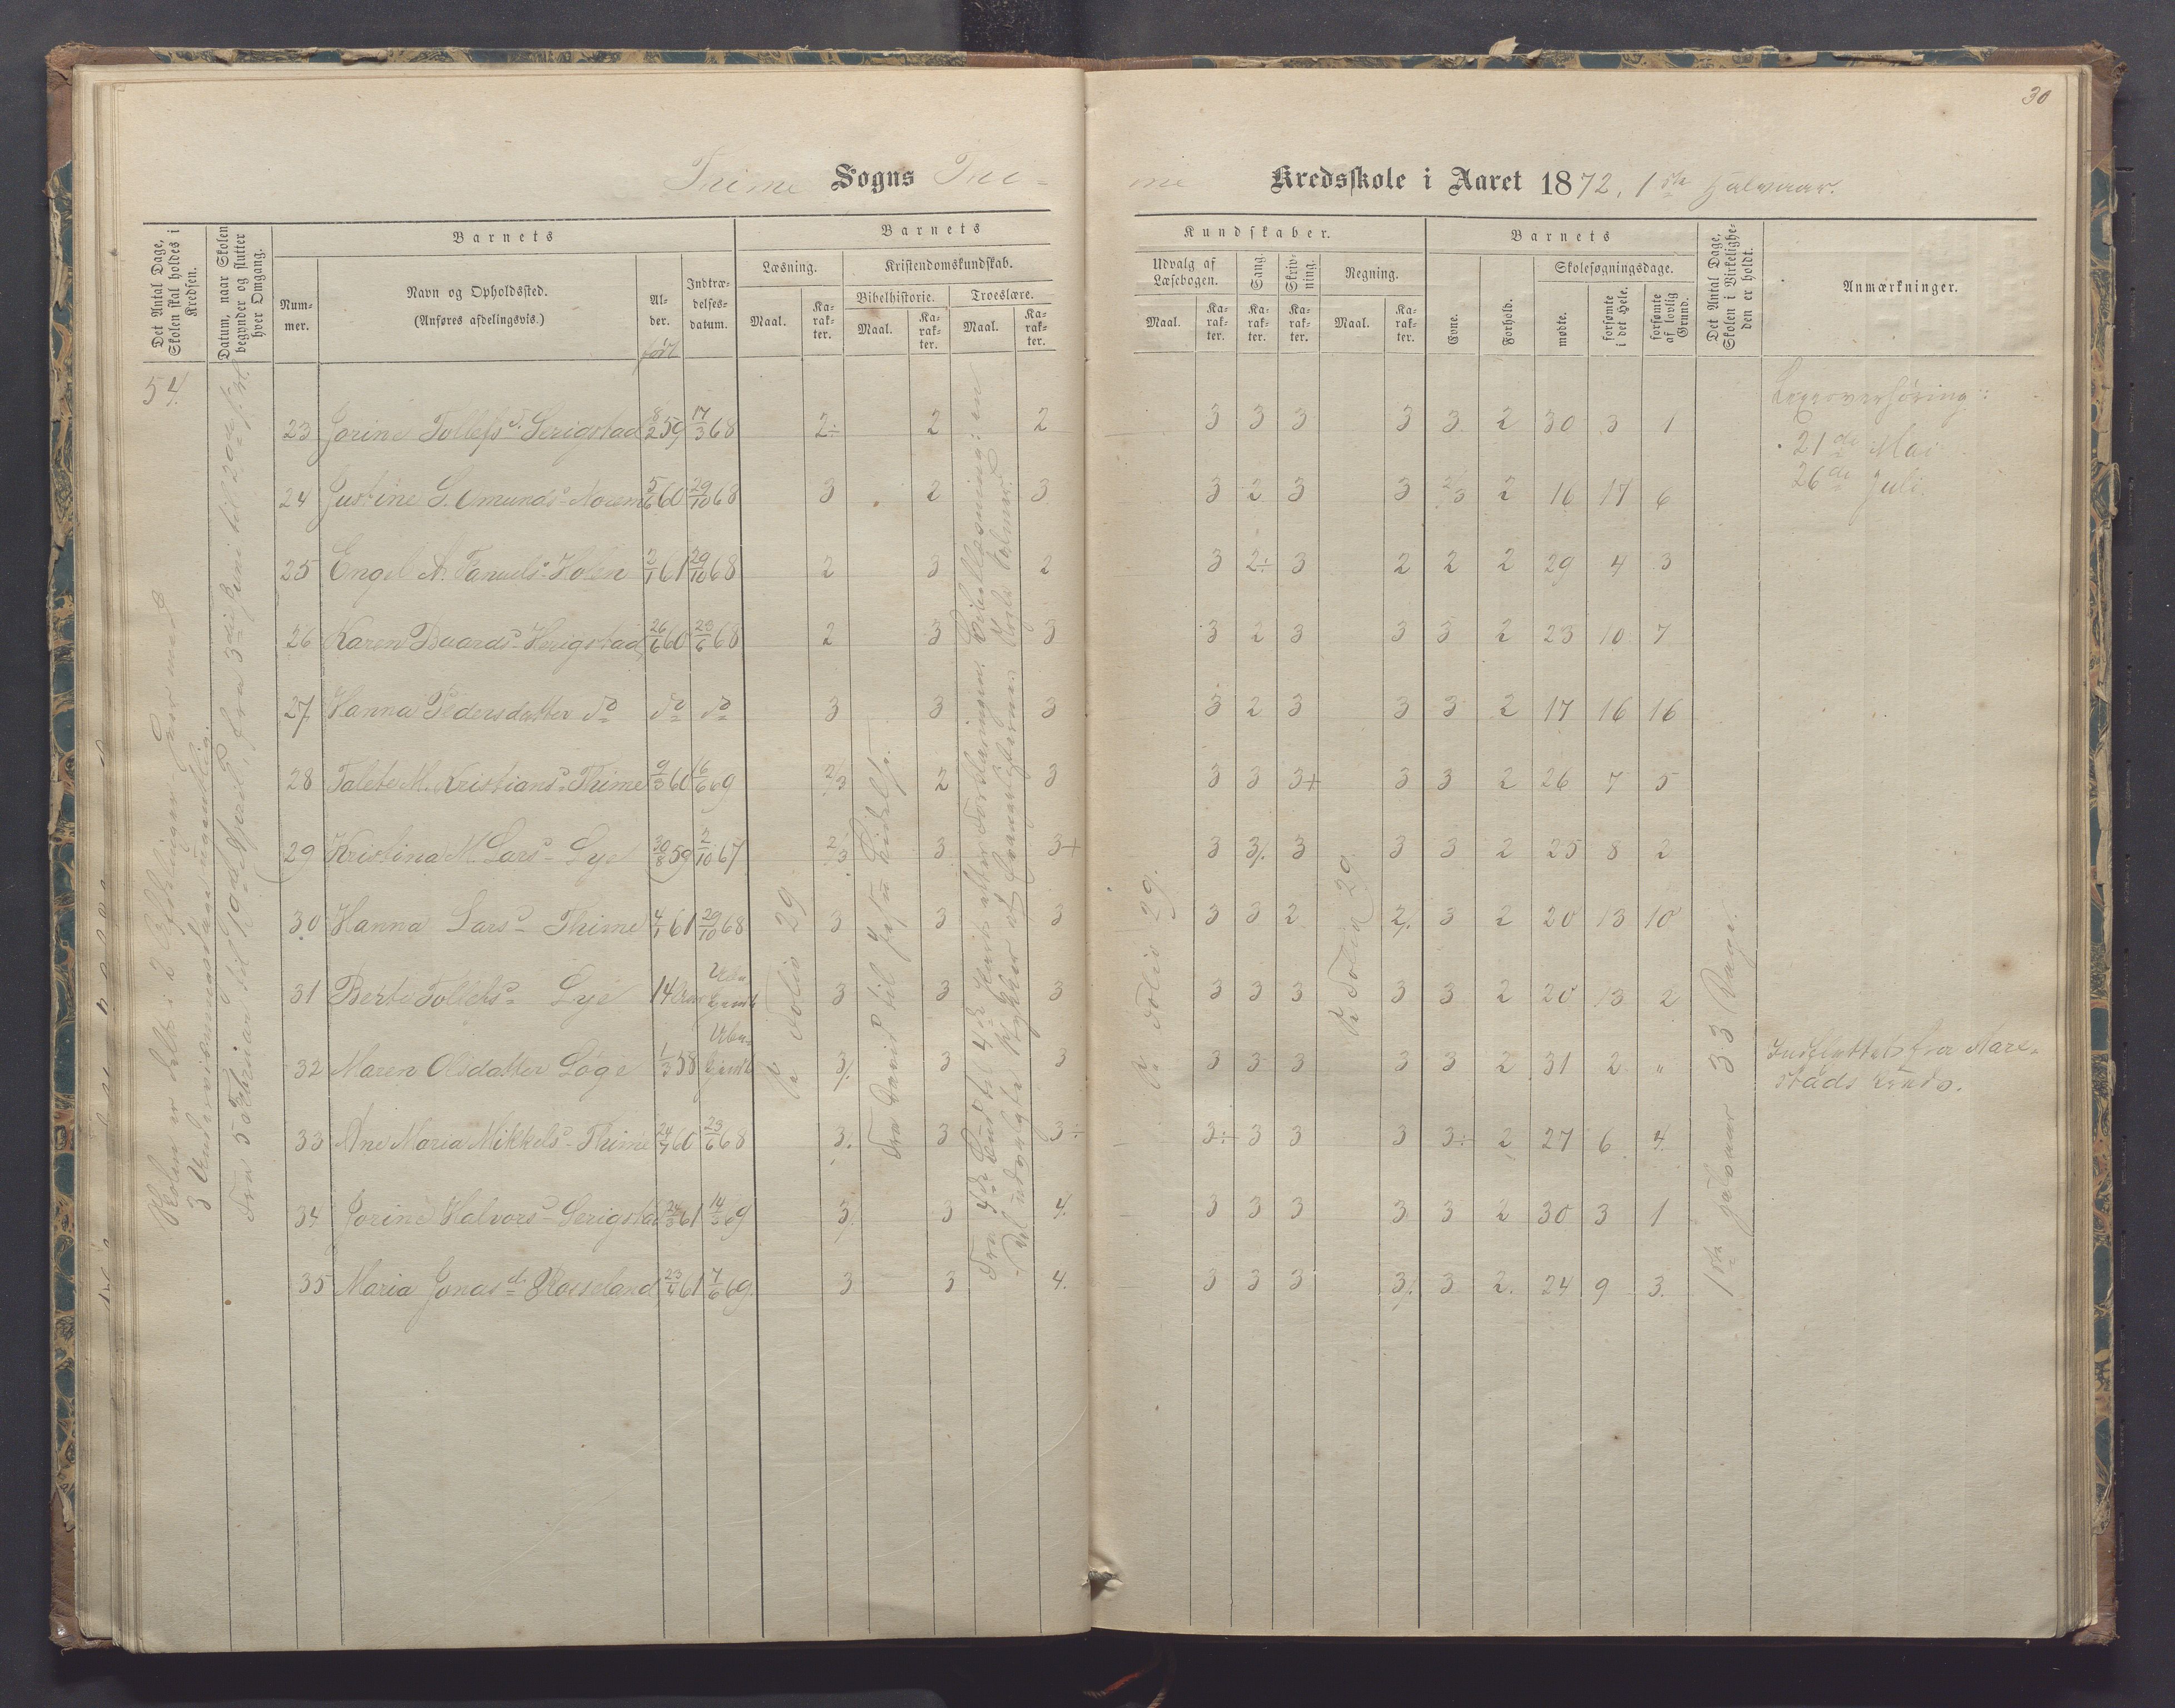 30
Time Sogns Ti-
me Kredsskole i Aaret 1872, 1ste Halvaar.
Det Antal Dage, Skolen skal holdes i Kredsen.
Datum, naar Skolen begynder og slutter hver Omgang.
Barnets
Nummer.
Navn og Opholdssted.
(Anføres afdelingsvis.)
Alder.
født
Indtrædelsesdatum.
Barnets
Læsning.
Kristendomskundskab.
Bibelhistorie.
Troeslære.
Maal.
Karakter.
Maal.
Karakter.
Maal.
Karakter.
Kundskaber.
Udvalg af Læsebogen.
Sang.
Skrivning.
Regning.
Maal.
Karakter.
Karakter.
Karakter.
Maal.
Karakter.
Barnets
Evne.
Forhold.
Skolesøgningsdage.
mødte.
forsømte i det Hele.
forsømte af lovlig Grund.
Det Antal Dage, Skolen i Virkeligheden er holdt.
Anmærkninger.
54.
Skolen er delt i 2 Afdelinger, hver med
3 Undervisningsdage ugentlig.
Fra 5 Februar til 19de April, fra 3die Juni til 20de
23 Jorine Tollefsd. Serigstad 8/2 59 17/3 68 2÷ 2 2 3 3 3 3 3 2 30 3 1
24 Justine S. Omundsd. Norem 5/6 60 29/10 68 3 2 3 3 2 3 3 2/3 2 16 17 6
25 Engel A. Tanuelsd. Holen 2/1 61 29/10 68 2 3 2 3 2÷ 3 2 2 2 29 4 3
26 Karen Duardsd. Herigstad 26/6 60 23/6 68 2 3 3 3 2 3 3 3 2 23 10 7
27 Hanna Pedersdatter do do do 3 3 3 3 2 3 3 3 2 17 16 16
28 Talete M. Kristiansd. Thime 9/3 60 6/6 69 2/3 2 3 3 3 3+ 3 3 2 26 7 5
29 Kristina M. Larsd. Lye 30/8 59 2/10 67 2/3 3 3+ 3 3/. 3 3 3 2 25 8 2
30 Hanna Larsd. Thime 4/1 61 29/10 68 3 3 3 3 3 2 2/. 3 2 20 13 10
31 Berte Tollefsd. Lye 14 Aar Ubekjendt 3 3 3 3 3 3 3 3 2 20 13 2
32 Maren Olsdatter Løge 1/3 58 Ubekjendt 3/. 3 3 3 3 3 3 3 2 31 2 "
33 Ane Maria Mikkelsd. Thime 24/7 60 23/6 68 3/. 3 3÷ 3÷ 3 3 3 3÷ 2 27 6 4
34 Jorine Halvorsd. Serigstad 26/3 61 14/3 69 3/. 3 4. 3 3 3 3 3 2 30 3 1
35 Maria Jonasd. Rosseland 23/4 61 7/6 69 3 3 4. 3 3 3 3/. 3 2. 24 9 3.
Se Folio 29
Fra David til
Fra 4de Bud til 4de Part efter Forklaringen. Bibellæsning: en
Del udvalgte Stykker af Evangelisterne. Nogle Salmer.
Se Folio 29.
Se Folio 29.
1ste Halvaar 33 Dage.
Lexeoverhøring:
21de Mai
26de Juli
Indflyttet fra
stads Kreds.